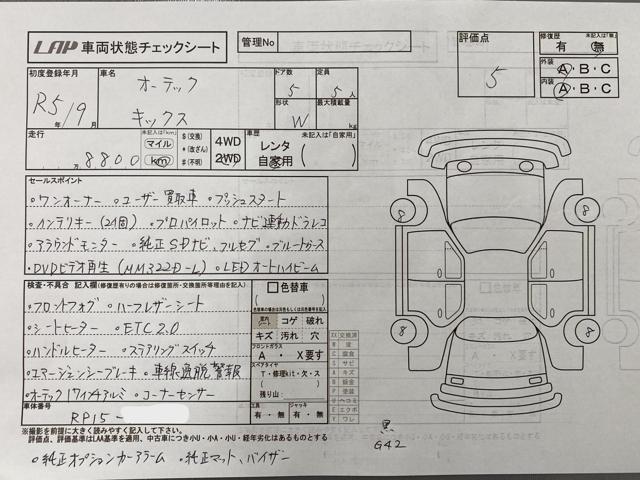 LAP 車両状態チェックシート
管理No
評価点 5
修復歴 未記入は「無」 有・無
外装 A・B・C
内装 A・B・C
初度登録年月 R5/9月
車名 オーテック キックス
ドア数 5
定員 5人
形状 W
最大積載量 kg
走行 8800 万 未記入は「km」 マイル km
$(交換) *(改ざん) #(不明)
4WD 2WD
車歴 未記入は「自家用」 レンタ 自家用 ( )
セールスポイント
・ワンオーナー ・ユーザー買取車 ・プッシュスタート
・インテリキー(2個) ・プロパイロット ・ナビ連動ドラレコ
・アラウンドモニター ・純正SDナビ、フルセグ、ブルートゥース
・DVDビデオ再生(MM322D-L) ・LEDオートハイビーム
検査・不具合 記入欄(修復歴有りの場合は修復箇所・交換箇所等理由を記入)
・フロントフォグ ・ハーフレザーシート
・シートヒーター ・ETC2.0
・ハンドルヒーター ・ステアリングスイッチ
・エマージェンシーブレーキ ・車線逸脱警報
・オーテック17インチアルミ ・コーナーセンサー
□色替車
( )
コゲ 破れ
キズ 汚れ 穴
フロントガラス
A ・ X要す
スペアタイヤ
T・修理kit・欠・ス
残り山:
工具 有・無
ジャッキ 有・無
XX 交換済
X 要す
C 腐食
S サビ
A キズ
B 鈑金
P 塗装
U ヘコミ
E エクボ
Y ワレ
車体番号 RP15-
8 8
8 8
※撮影を前提に大きく読みやすく記入して下さい。
評価点、評価基準はLAA基準を適用、中古車につき小U・小A・小U・経年劣化はあるものとする
・純正オプションカーアラーム ・純正マット、バイザー
黒
G42